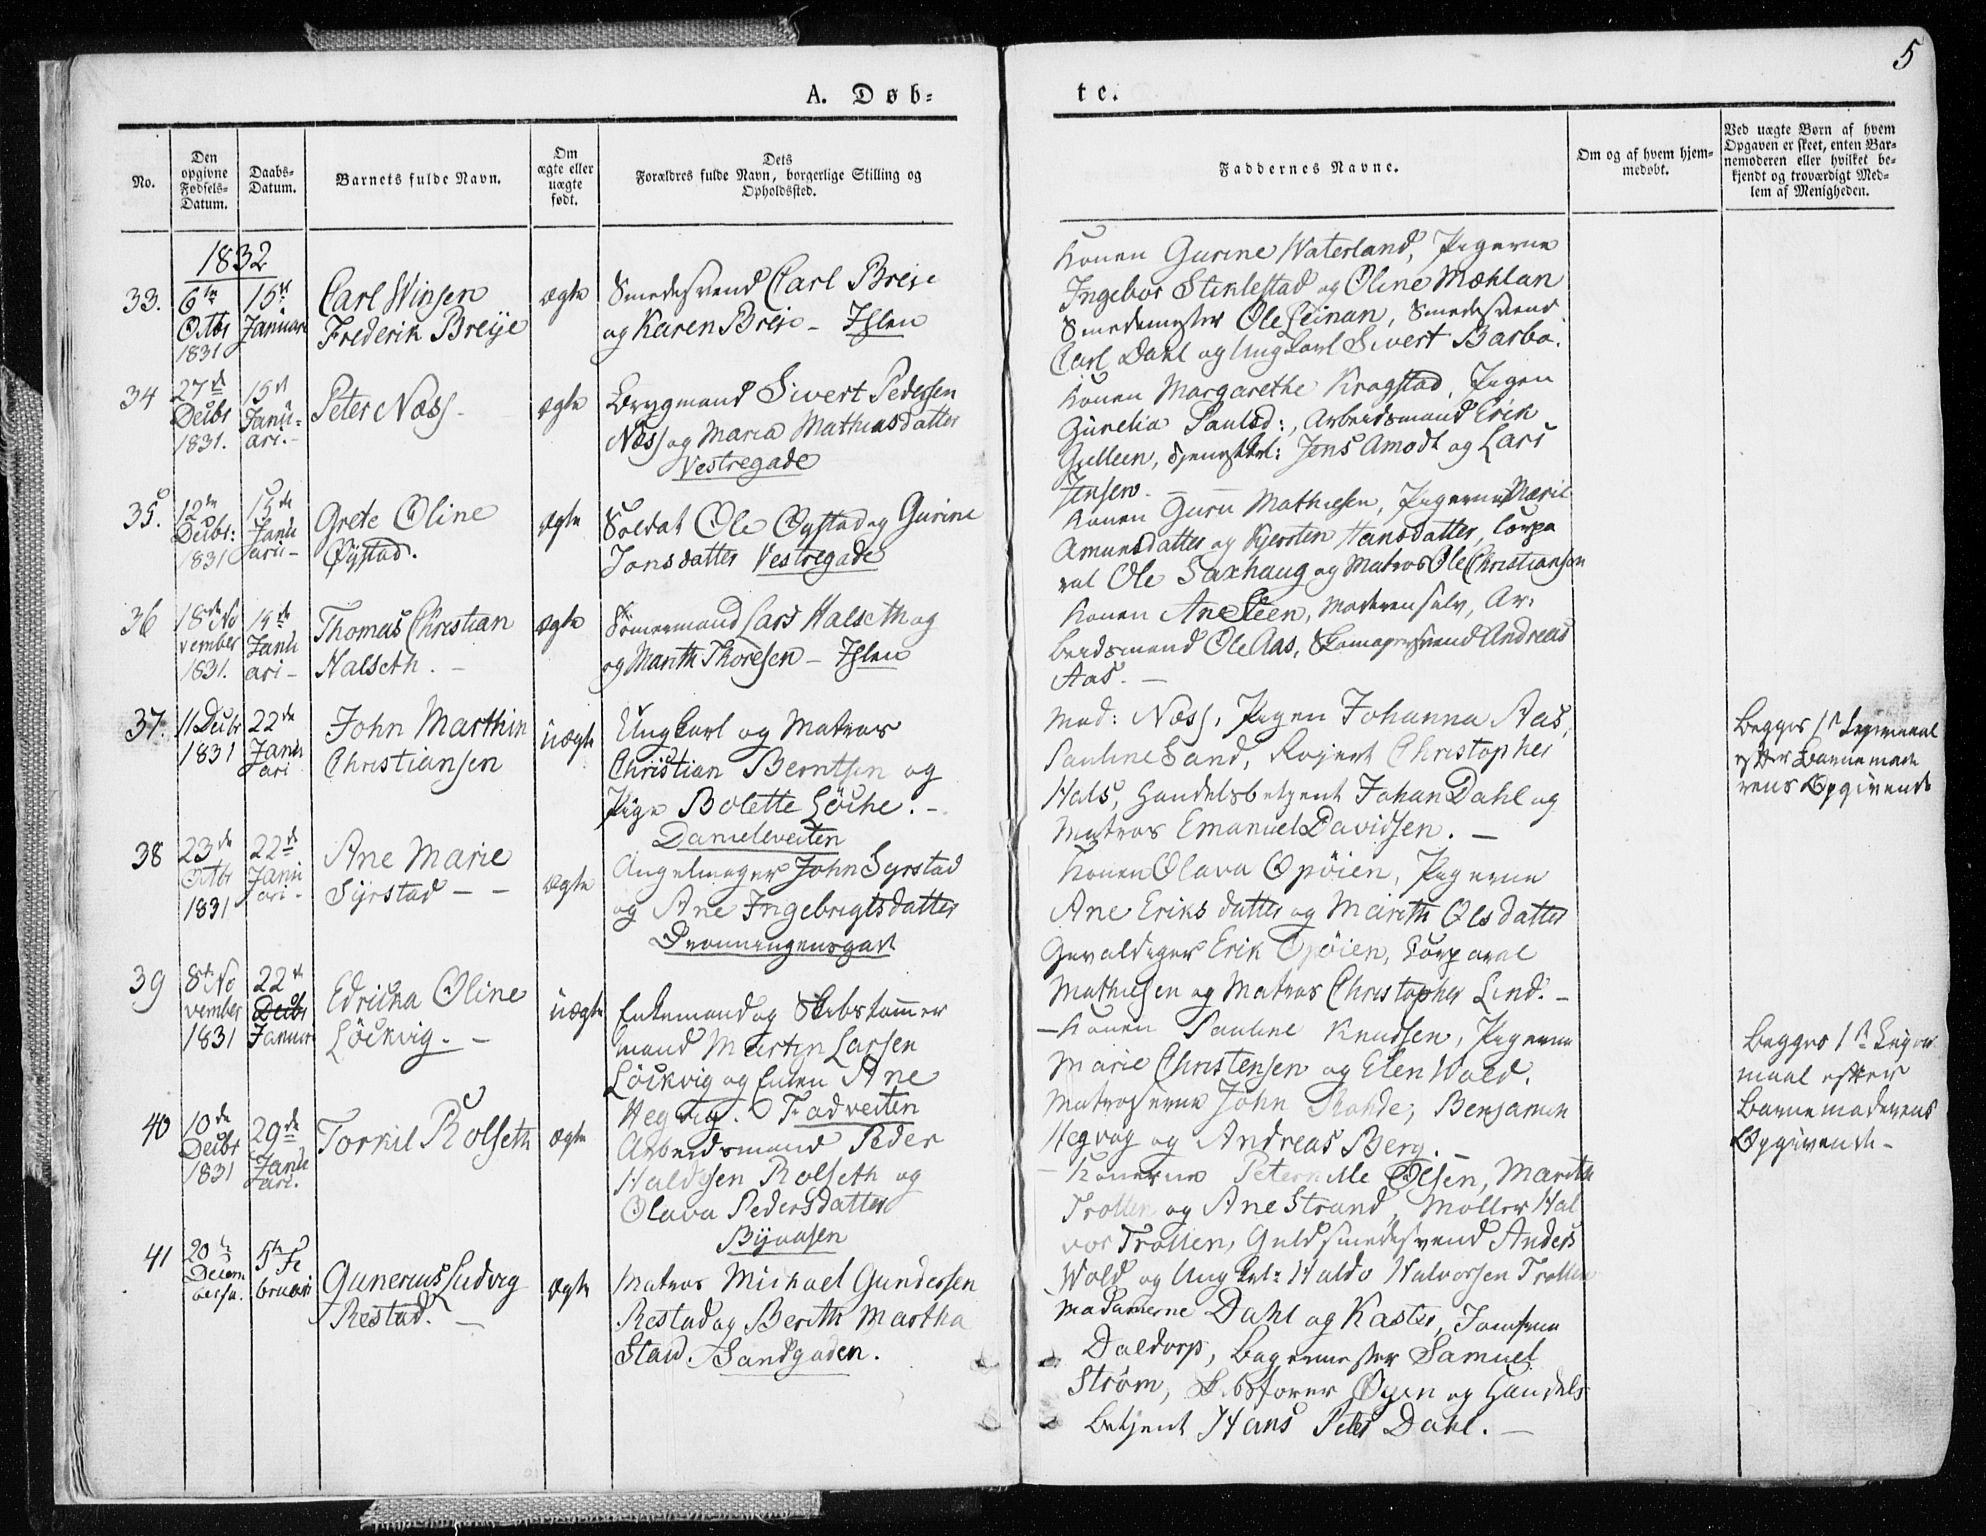 5
A. Døb-
te.
No.
Den
opgivne
Fødsels-
Datum.
Daabs-
Datum.
Barnets fulde Navn.
Om
ægte eller
uægte
født.
Dets
Forældres fulde Navn, borgerlige Stilling og
Opholdssted.
Faddernes Navne.
Om og af hvem hjem-
medøbt.
Ved uægte Børn af hvem
Opgaven er skeet, enten Bar-
nemoderen eller hvilket be-
kjendt og troværdigt Med-
lem af Menigheden.
1832
33.
6te
Octbr
1831
15de
Januari
Carl Winsen
Frederik Breije
ægte
Smedesvend Carl Breje
og Karen Breje - Ihlen
Konen Gurine Waterland, Pigerne
Ingebor Stiklestad og Oline Mæhlan
Smedemester Ole Leinan, Smedesvend
Carl Dahl og Ungkarl Sivert Barbo.
34
27de
Decbr
1831.
15de
Janu-
ari.-
Peter Næss -
ægte
Brygmand Sivert Pedersen
Næss og Maria Mathiasdatter
Vestregade
Konen Margarethe Kragstad, Pigen
Gurelia Paulsd:, Arbeidsmand Erik
Gulleen, Tjenestkrl: Jens Amodt og Lars
Jensen. -
35.
12de
Decbr:
1831
15de
Janu
arii-
Grete Oline
Øystad.
ægte
Soldat Ole Øystad og Gurine
Jonsdatter Vestregade
Konen Guru Mathiesen, Pigerne Marit
Amunsdatter og Kjersten Hansdatter, Corpo
ral Ole Saxhaug og Matros Ole Christiansen
36
18de No
vember
1831.
15de
Janu
ari-
Thomas Christian
Halseth. -
ægte
Tømermand Lars Halseth og
og Marith Thoresen - Ihlen
Konen Ane Steen, Moderen selv, Ar-
beidsmand Ole Aas, Skomagersvend Andreas
Aas. -
37.
11 Decbr
1831
22de
Janu
ari
John Marthin
Christiansen
uægte
Ungkarl og Matros
Christian Berntsen og
Pige Bolette Löche. -
Danieleveiten
Mad: Næss, Pigen Johanna Aas,
Pauline Sand, Christopher
Hals, Handelsbetjent Johan Dahl og
Matros Emanuel Davidsen. -
Begges 1ste Leiermaal
efter Barnemode
rens Opgivende
38
23de
Octbr
1831
22de
Janu
ari-
Ane Marie
Syrstad - -
ægte
Angelmager John Syrstad
og Ane Ingebrigtsdatter
Dronningensgad
Konen Olava Opøien, Pigerne
Ane Eriksdatter og Marith Olsdatter
Gevaldiger Erik Opøien, Corporal
Mathiesen og Matros Christopher Lind. -
39
8de No
vember
1831
22de
Decbr
Januar
Edricka Oline
Löckvig. -
uægte
Enkemand og Skibstømmer
mand Martin Larsen
Löckvig og Enken Ane
Hegvig. Fadveiten
- Konen Pauline Knudsen, Pigerne
Marie Christensen og Elen Wold.
Matroserne John Rohde, Benjamin
Hegvag og Andreas Berg. -
Begges 1ste Leier
maal efter
Barnemoderens
Opgivende-
40
10de
Decbr
1831
29de
Janu
ari.
Torkil Rolseth
ægte
Arbeidsmand Peder
Haldosen Rolseth og
Olava Pedersdatter
Byaasen
- Konerne Peternille Olsen, Marith
Trollen og Ane Strand, Møller Hal
vor Trollen, Guldsmedesvend Anders
Wold og Ungkrl: Haldo Halvorsen Trollen
41
20de
Decem
5te Fe
bruari
Gunerius Ludvig
Restad. -
ægte
Matros Michael Gundersen
Restad og Berith Martha
Stav. Sandgaden.
Madamerne Dahl og Kaster, Jomfrue
Daldorp, Bagermester Samuel
Strøm, Skibsfører Øyen og Handels
betjent Hans Peter Dahl. -